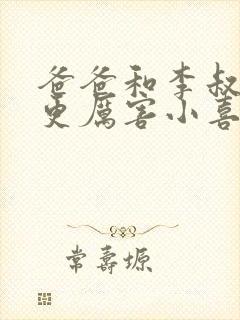 爸爸和李叔
更厲害小喜
常壽塬